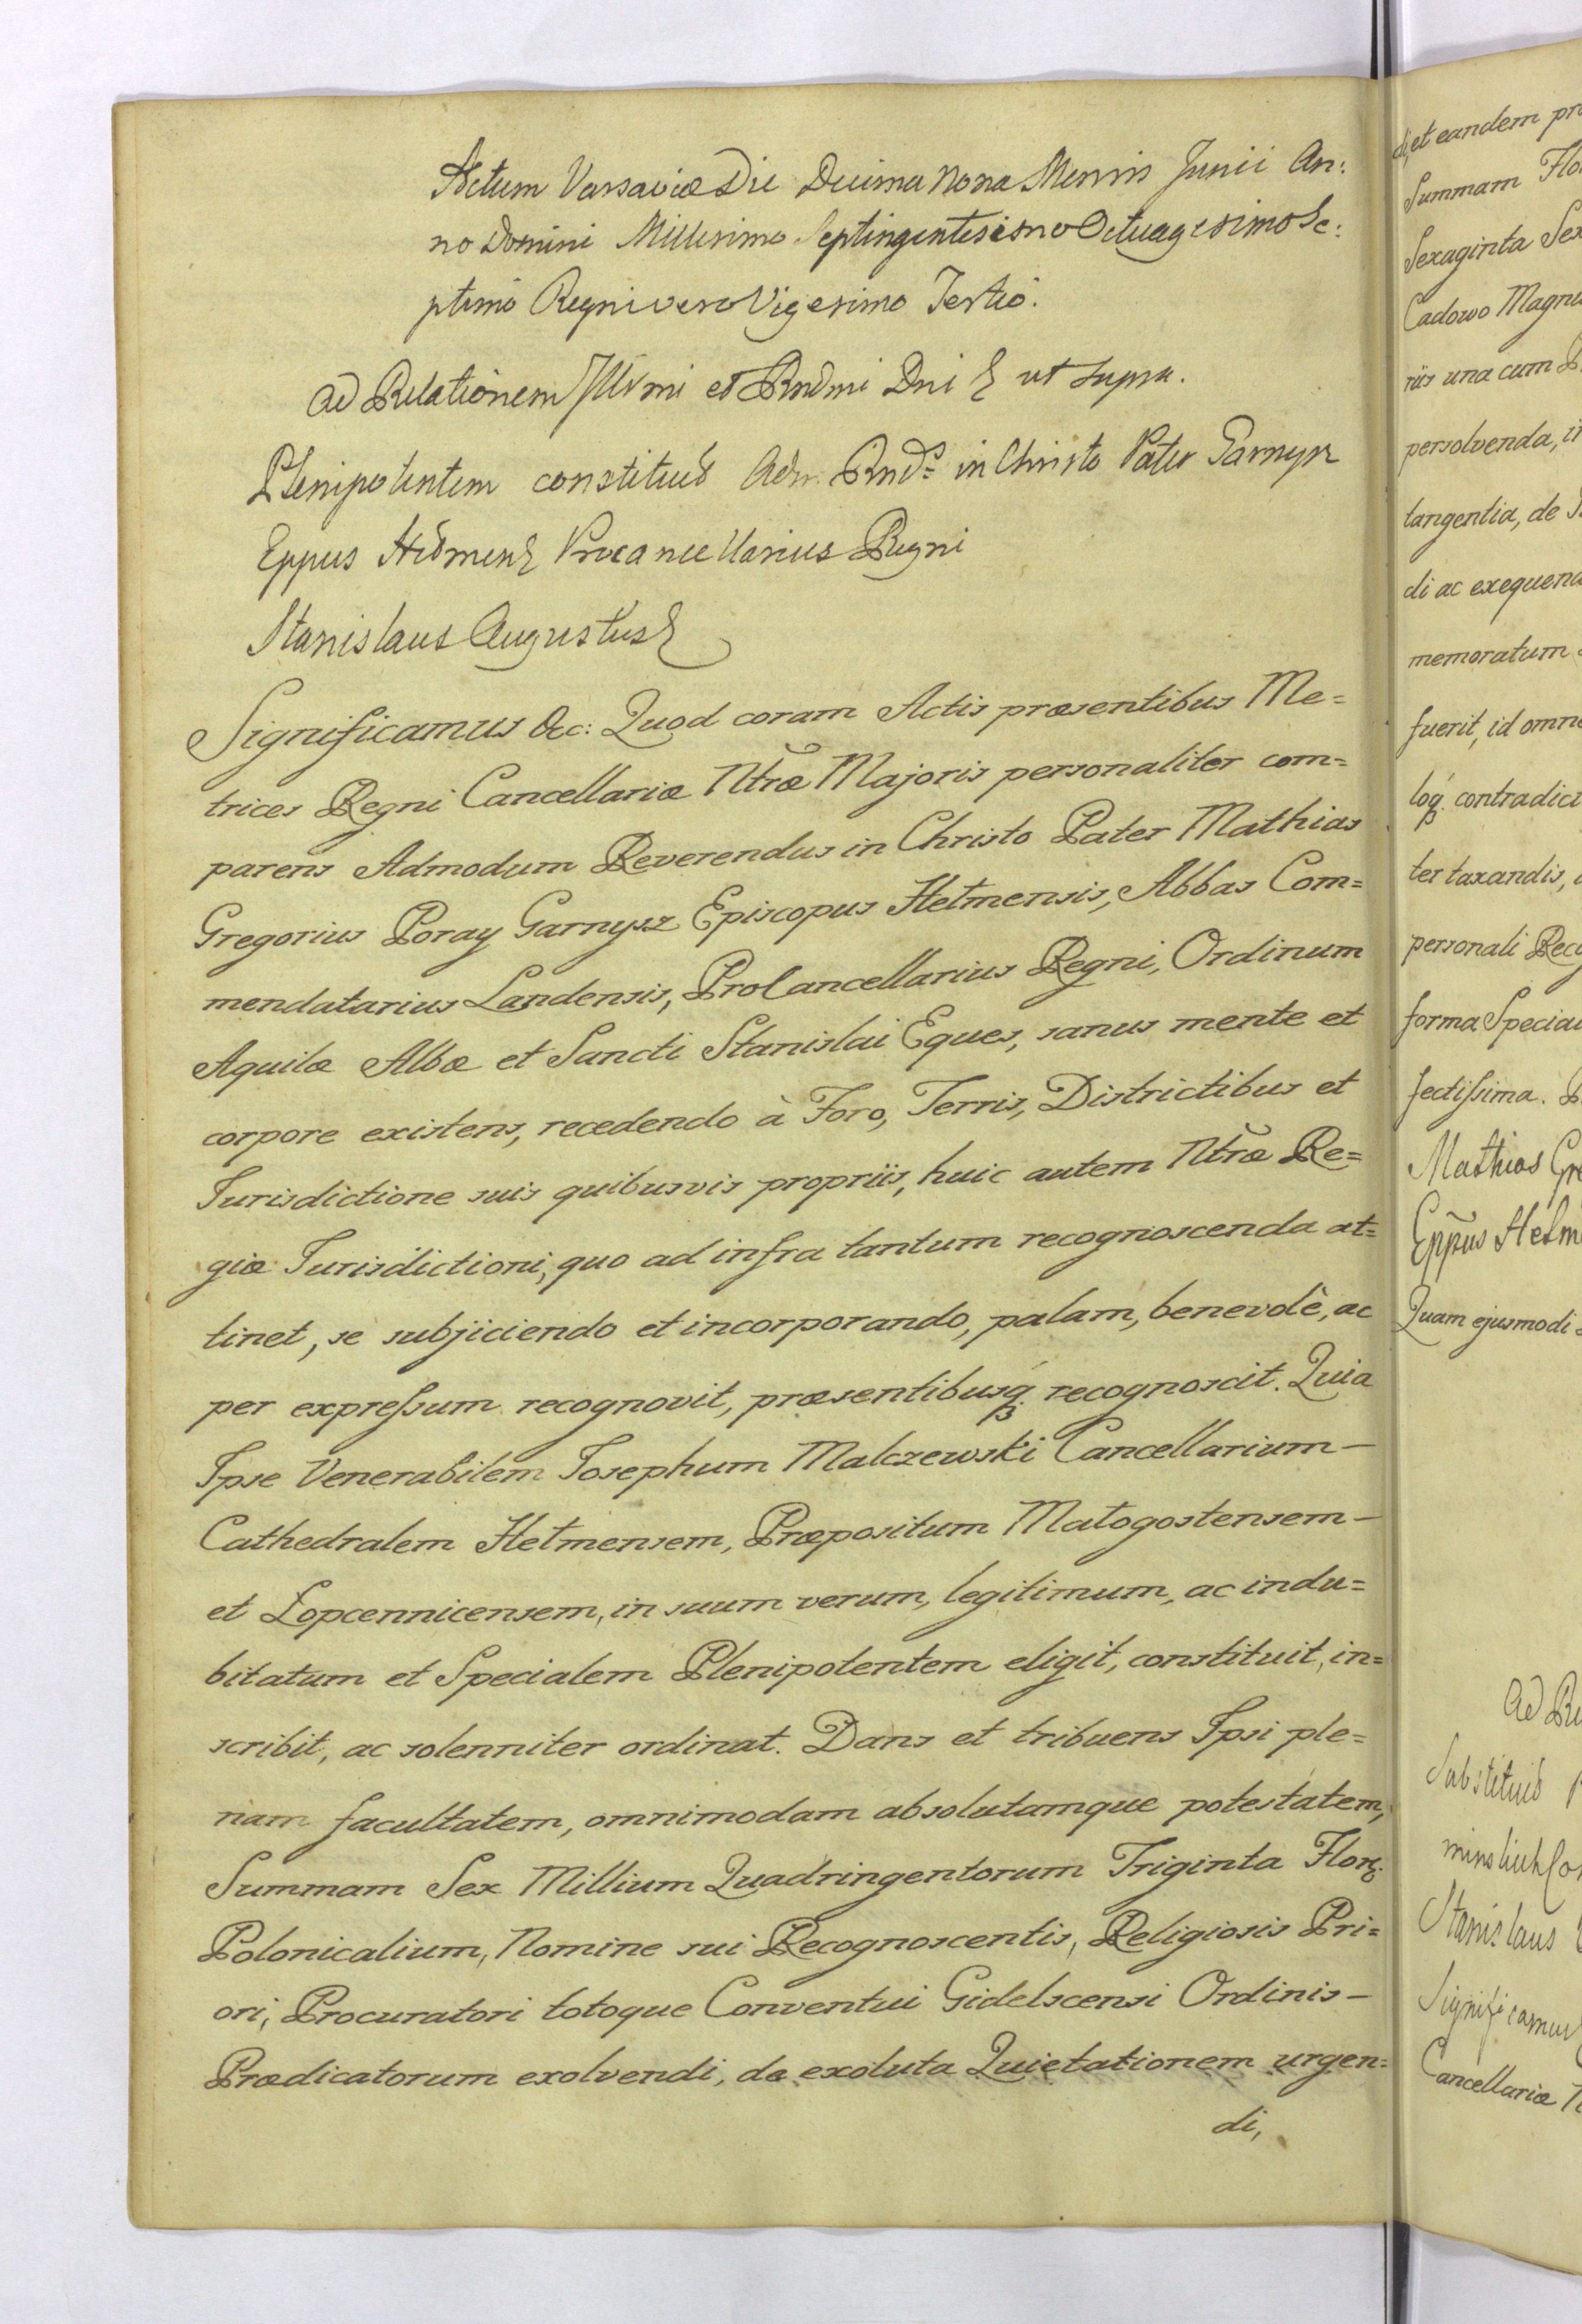 Actum Varsaviæ Die Decima Nona Mensis Junii An:
no Domini Millesimo Septingentesimo Octuagesimo Se:
ptimo Regni vero Vigesimo Tertio.
Ad Relationem Illrmi et Rndmi Dni & ut supra.
Plenipotentem constituit Adm. Rnds in Christo Pater Garnysz
Eppus Hełmens Procancellarius Regni
Stanislaus Augustus &
Significamus &c: Quod coram Actis præsentibus Me=
trices Regni Cancellariæ Ntræ Majoris personaliter com=
parens Admodum Reverendus in Christo Pater Mathias
Gregorius Poray Garnysz Episcopus Hełmensis, Abbas Com=
mendatarius Landensis, ProCancellarius Regni, Ordinum
Aquilæ Albæ et Sancti Stanislai Eques, sanus mente et
corpore existens, recedendo à Foro, Terris, Districtibus et
Jurisdictione suis quibusvis propriis, huic autem Ntræ Re=
giæ Jurisdictioni, quo ad infra tantum recognoscenda at=
tinet, se subjiciendo et incorporando, palam, benevolè, ac
per expreſsum recognovit, præsentibusq́ recognoscit. Quia
Ipse Venerabilem Josephum Malczewski Cancellarium –
Cathedralem Hełmensem, Præpositum Małogostensem –
et Łopcennicensem, in suum verum, legitimum, ac indu=
bitatum et Specialem Plenipotentem eligit, constituit, in=
scribit, ac solenniter ordinat. Dans et tribuens Ipsi ple=
nam facultatem, omnimodam absolutamque potestatem,
Summam Sex Millium Quadringentorum Triginta Flor.
Polonicalium, Nomine sui Recognoscentis, Religiosis Pri=
ori, Procuratori totoque Conventui Gidelscensi Ordinis –
Prædicatorum exolvendi, de exoluta Quietationem urgen=
di,
di, et eandem
Summam
Sexaginta
Cadowo
riis una cum
persolvenda,
tangentia, de
di ac
memoratum
fuerit, id
loq́
ter taxandis,
personali
forma
fectiſsima.
Mathias
Eppus
Quam ejusmodi
Ad
Substituit
Stanislaus
Significamus
Cancellariæ